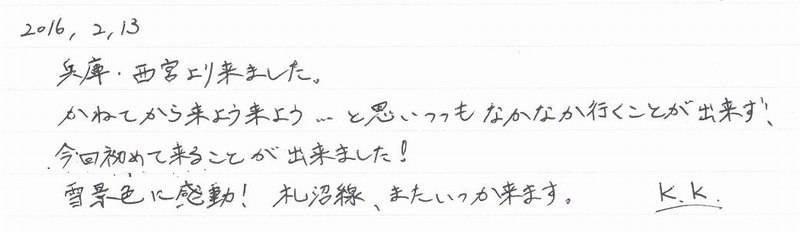 2016, 2, 13
兵庫・西宮より来ました。
かねてから来よう来よう…と思いつつもなかなか行くことが出来ず、
今回初めて来ることが出来ました！
雪景色に感動！ 札沼線、またいつか来ます。 K.K.